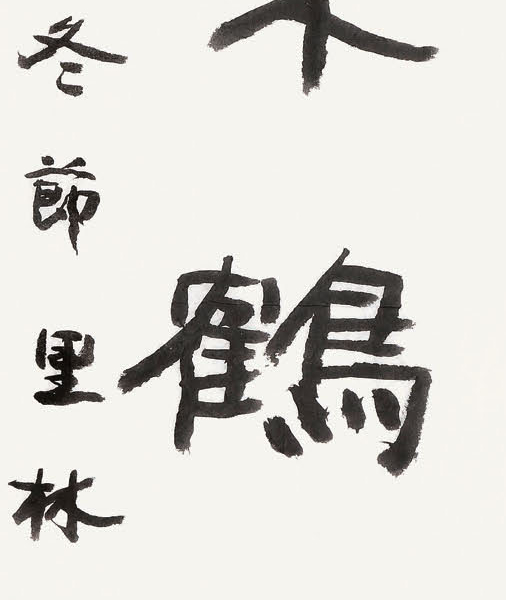 鶴
冬節里林